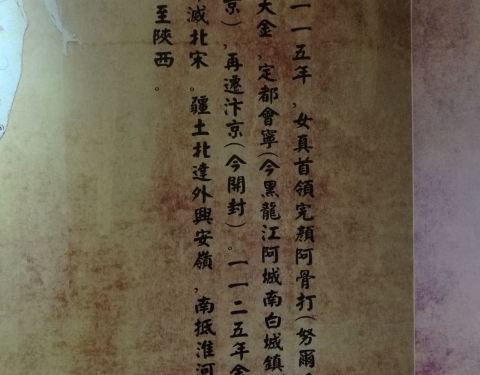 一一一五年，女真首領完顏阿骨打(努爾
大金，定都會寧(今黑龍江阿城南白城鎮
京)，再遷汴京(今開封)。一一二五年金
滅北宋。疆土北達外興安嶺，南抵淮河
至陝西。